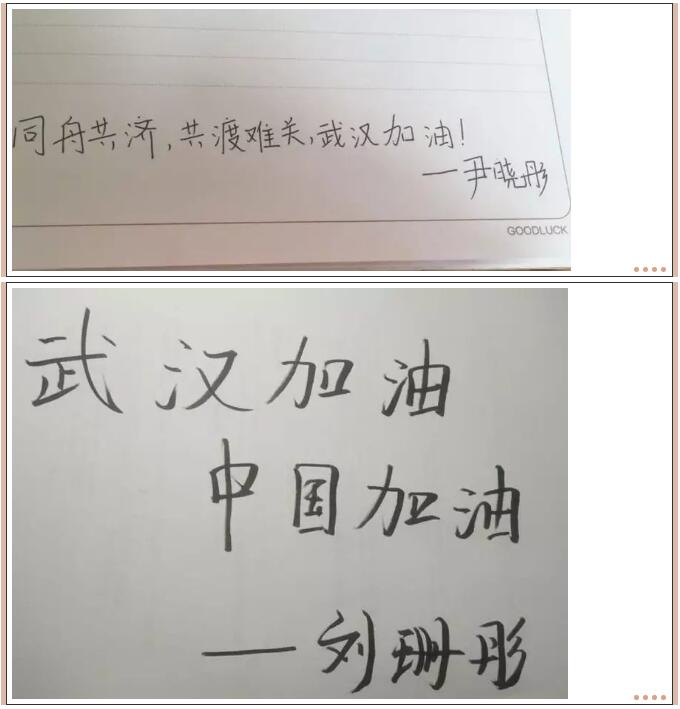 同舟共济,共渡难关,武汉加油!
—尹晓彤
GOODLUCK
武汉加油
中国加油
——刘珊彤